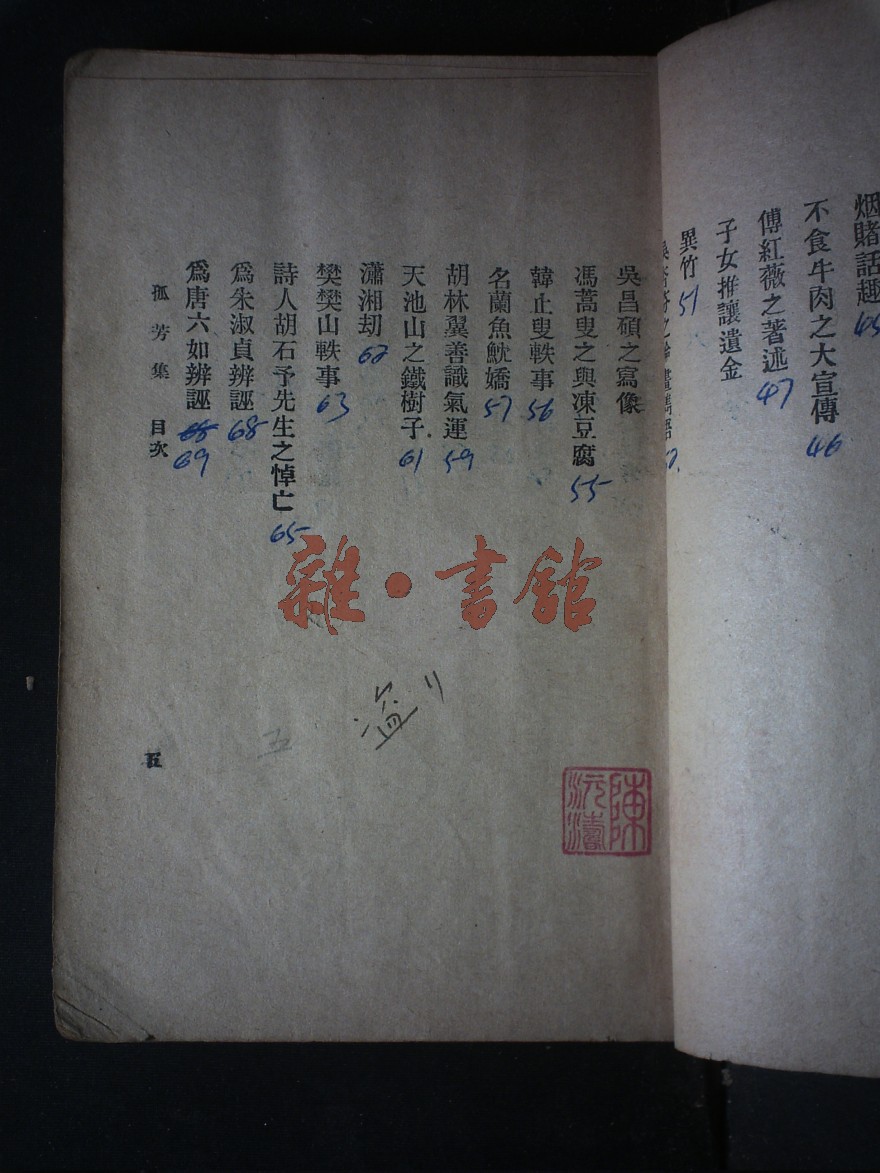 烟賭話趣 45
不食牛肉之大宣傳 46
傅紅薇之著述 47
子女推讓遺金
異竹 51
吳昌碩之寫像
馮蒿叟之與凍豆腐 55
韓止叟軼事 56
名蘭魚魫嬌 57
胡林翼善識氣運 59
天池山之鐵樹子 61
瀟湘刧 62
樊樊山軼事 63
詩人胡石予先生之悼亡 65
爲朱淑貞辨誣 68
爲唐六如辨誣 68 69
孤芳集 目次
五
雜·書館
五
陳沅濤